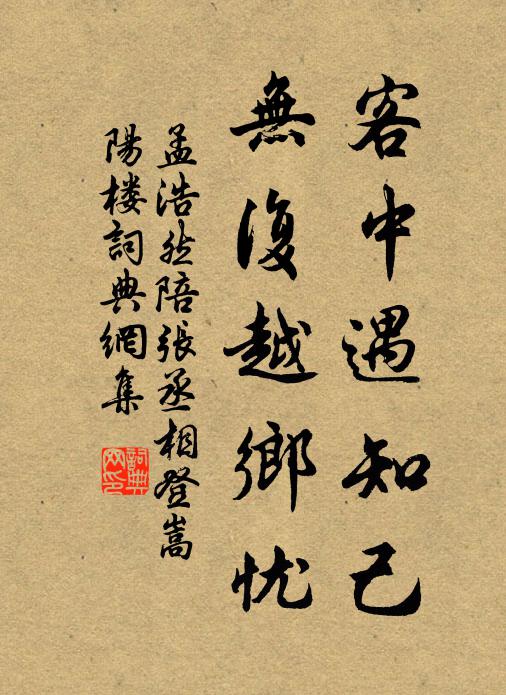 客中遇知己
無復越鄉忧
孟浩然陪張丞相登嵩
陽楼詞典網集
詞典网印